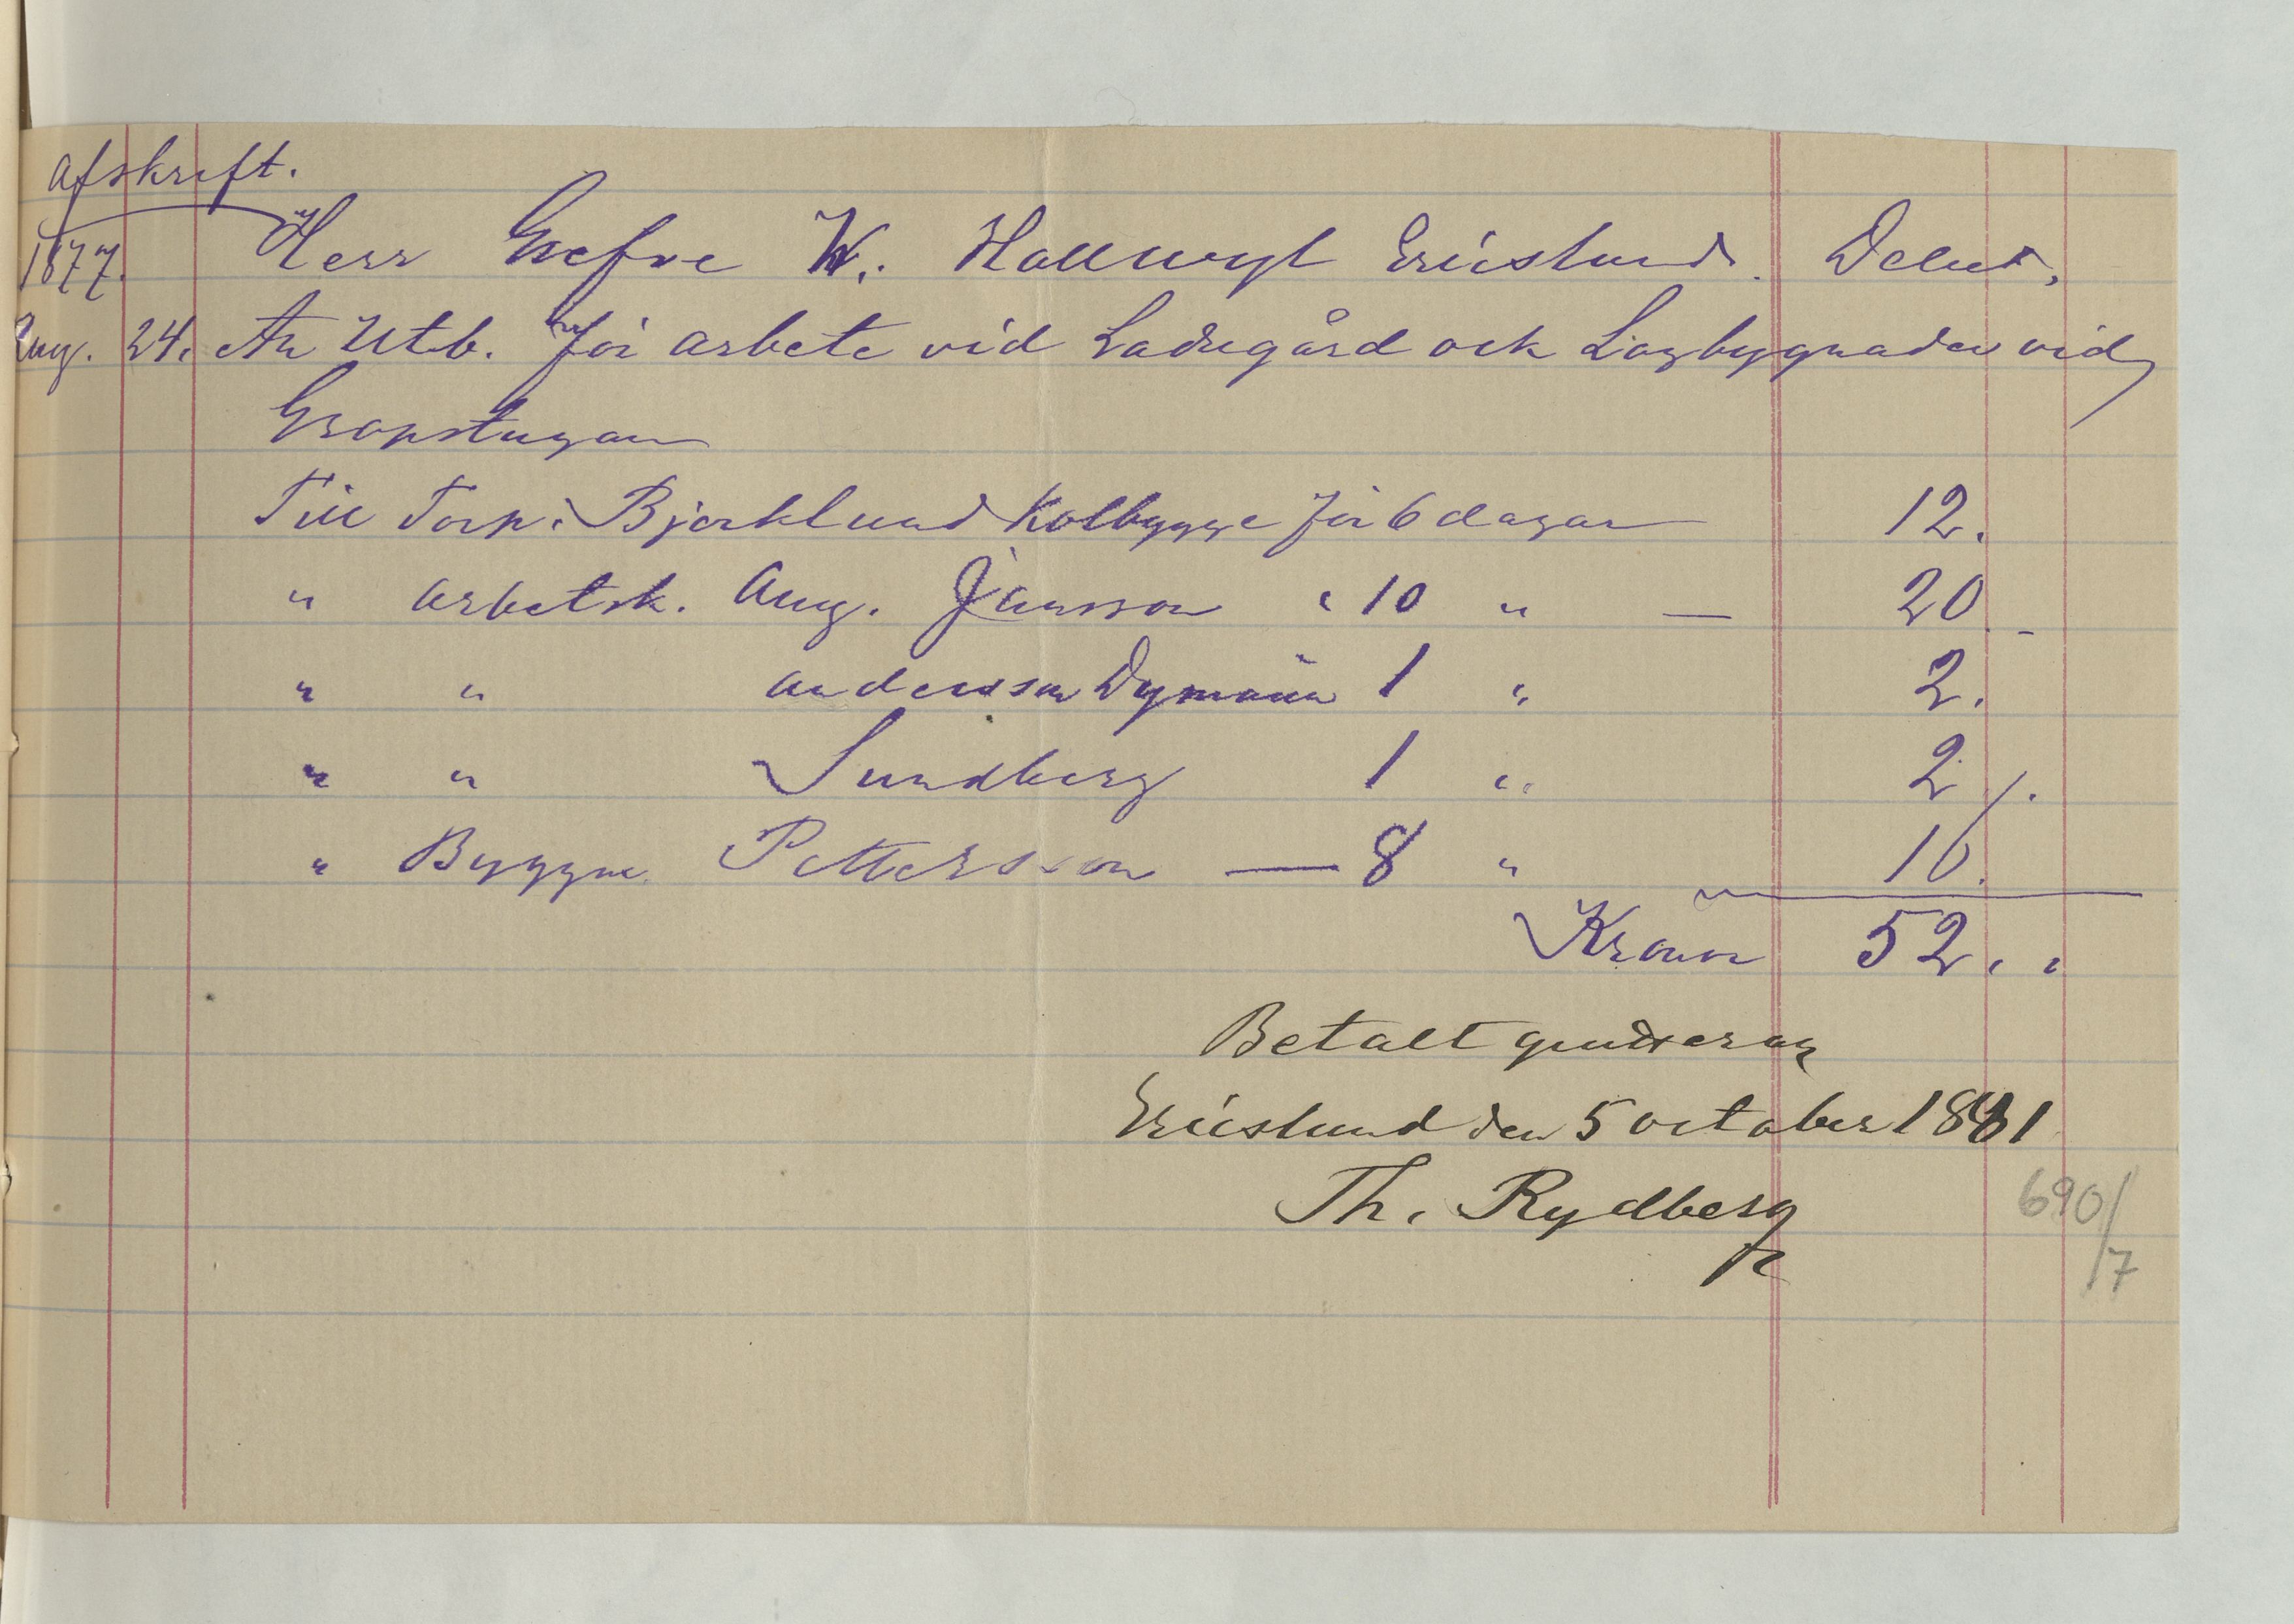 afskrift.
1877. Herr Grefve W. Hallwyl Ericslund. Debet.
Aug. 24. An Utb. för arbete vid Ladugård och Logbygnaden vid
Gropstugan
Till Torp. Bjorklund Kolbygge för 6 dagar 12.
" arbetsk. Aug. Jansson " 10 " — 20 -
" " andersson Dyman 1 " 2.
" " Sundberg 1 " 2
" Byggm. Pettersson — 8 " 16.
Kronor 52. "
Betalt qvitteras
Ericslund den 5 october 1881
Th. Rydberg
690/7